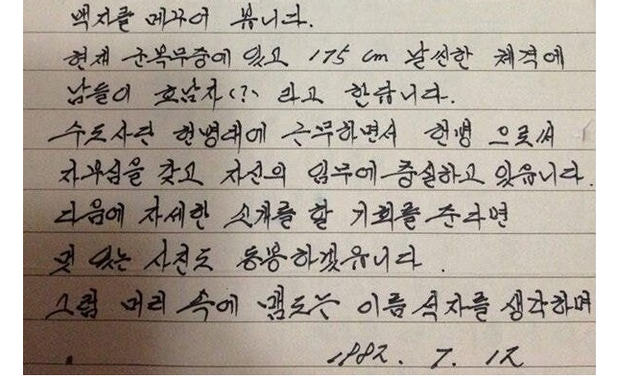 백지를 메꾸어 봅니다.
현재 군복무중에 있고 175 cm 날씬한 체격에
남들이 호남자(?) 라고 한답니다.
수도사단 헌병대에 근무하면서 헌병 으로써
자부심을 갖고 자신의 임무에 충실하고 있읍니다.
다음에 자세한 소개를 할 기회를 준다면
멋 있는 사진도 동봉하겠읍니다.
그럼 머리 속에 맴도는 이름 석자를 생각하며
1982. 7. 12